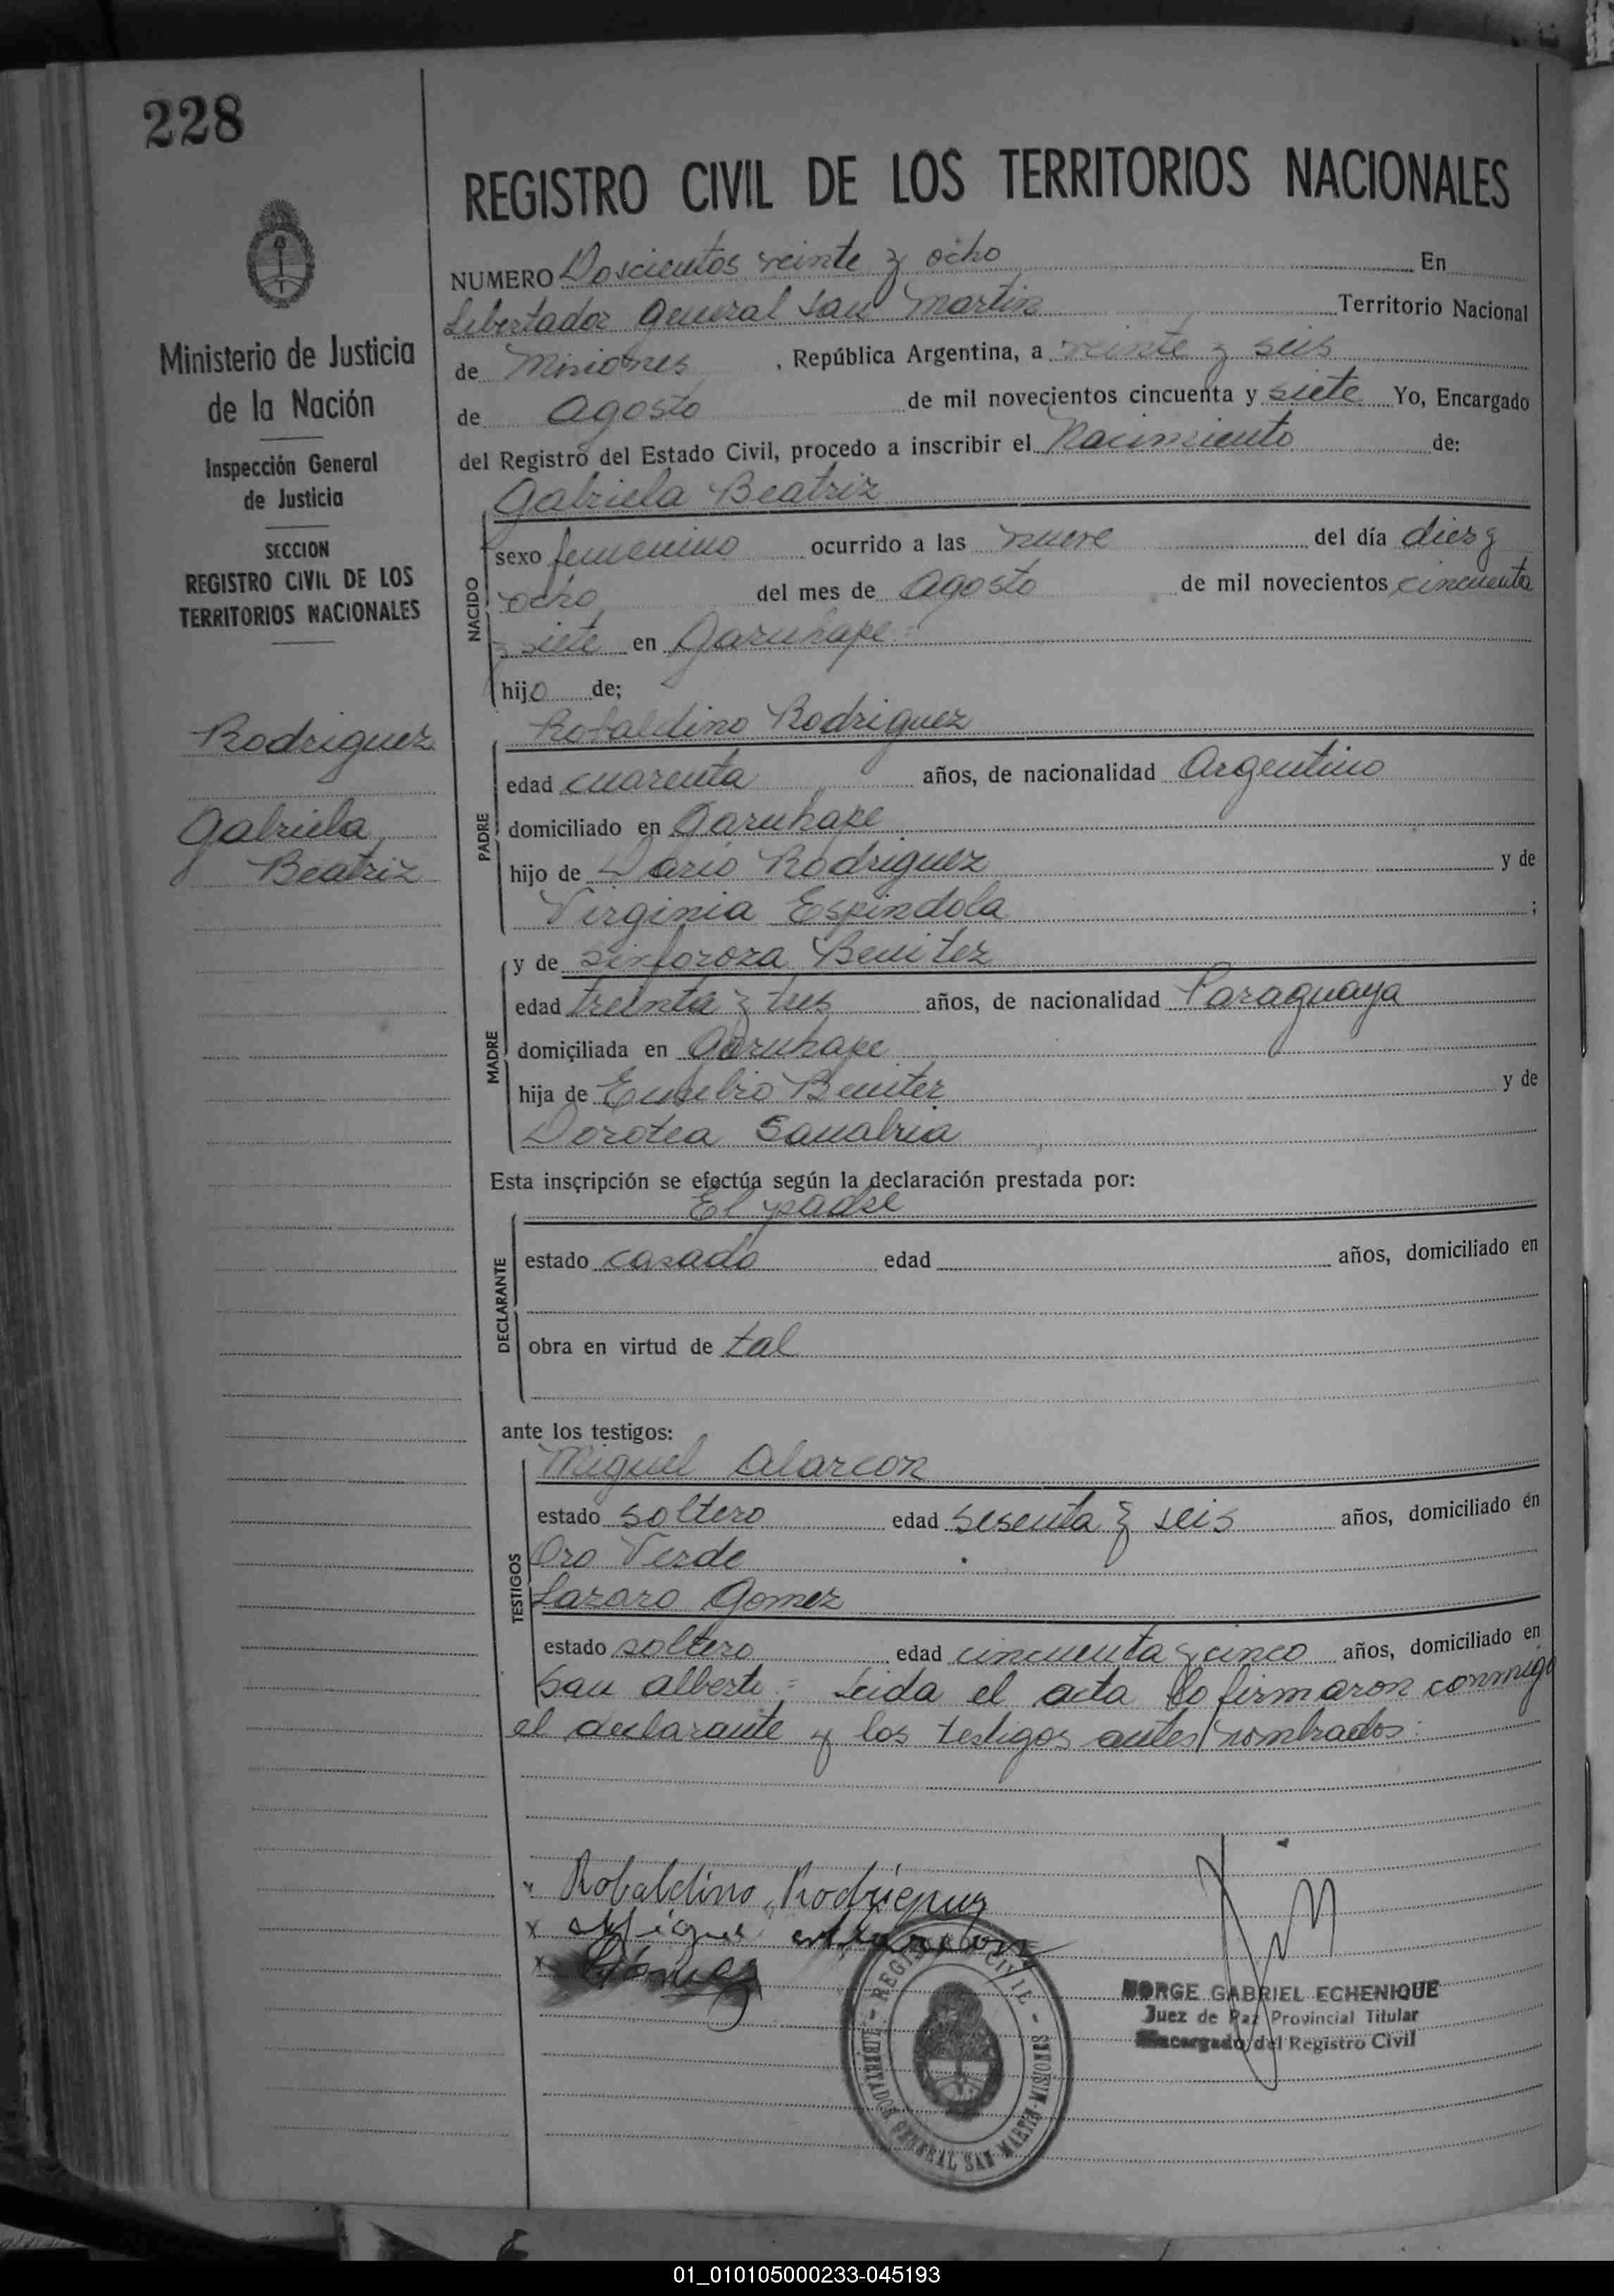 228
Ministerio de Justicia
de la Nación
Inspección General
de Justicia
SECCION
REGISTRO CIVIL DE LOS
TERRITORIOS NACIONALES
Rodriguez
Gabriela
Beatriz
REGISTRO CIVIL DE LOS TERRITORIOS NACIONALES
NUMERO Doscientos veinte y ocho En
Libertador General San Martin Territorio Nacional
de Misiones, República Argentina, a veinte y seis
de Agosto de mil novecientos cincuenta y siete Yo, Encargado
del Registro del Estado Civil, procedo a inscribir el Nacimiento de:
Gabriela Beatriz
NACIDO
sexo femenino ocurrido a las nueve del día diez y
ocho del mes de Agosto de mil novecientos cincuenta
y siete en Garuhape
hijo de;
Robaldino Rodriguez
PADRE
edad cuarenta años, de nacionalidad Argentino
domiciliado en Garuhape
hijo de Dario Rodriguez y de
Virginia Espindola ;
y de Sinforoza Benitez
MADRE
edad treinta y tres años, de nacionalidad Paraguaya
domiciliada en Garuhape
hija de Eusebio Benitez y de
Dorotea Sanabria
Esta inscripción se efectúa según la declaración prestada por:
El padre
DECLARANTE
estado casado edad años, domiciliado en
obra en virtud de tal
ante los testigos:
Miguel Alarcon
TESTIGOS
estado soltero edad sesenta y seis años, domiciliado en
Oro Verde
Lazaro Gomez
estado soltero edad cincuenta y cinco años, domiciliado en
San Alberto = Leida el acta lo firmaron conmigo
el declarante y los testigos antes nombrados.
Robaldino Rodriguez
x Miguel Alarcon
x Gómez
REGISTRO CIVIL - LIBERTADOR GENERAL SAN MARTIN - MISIONES
JORGE GABRIEL ECHENIQUE
Juez de Paz Provincial Titular
Encargado del Registro Civil
01_010105000233-045193